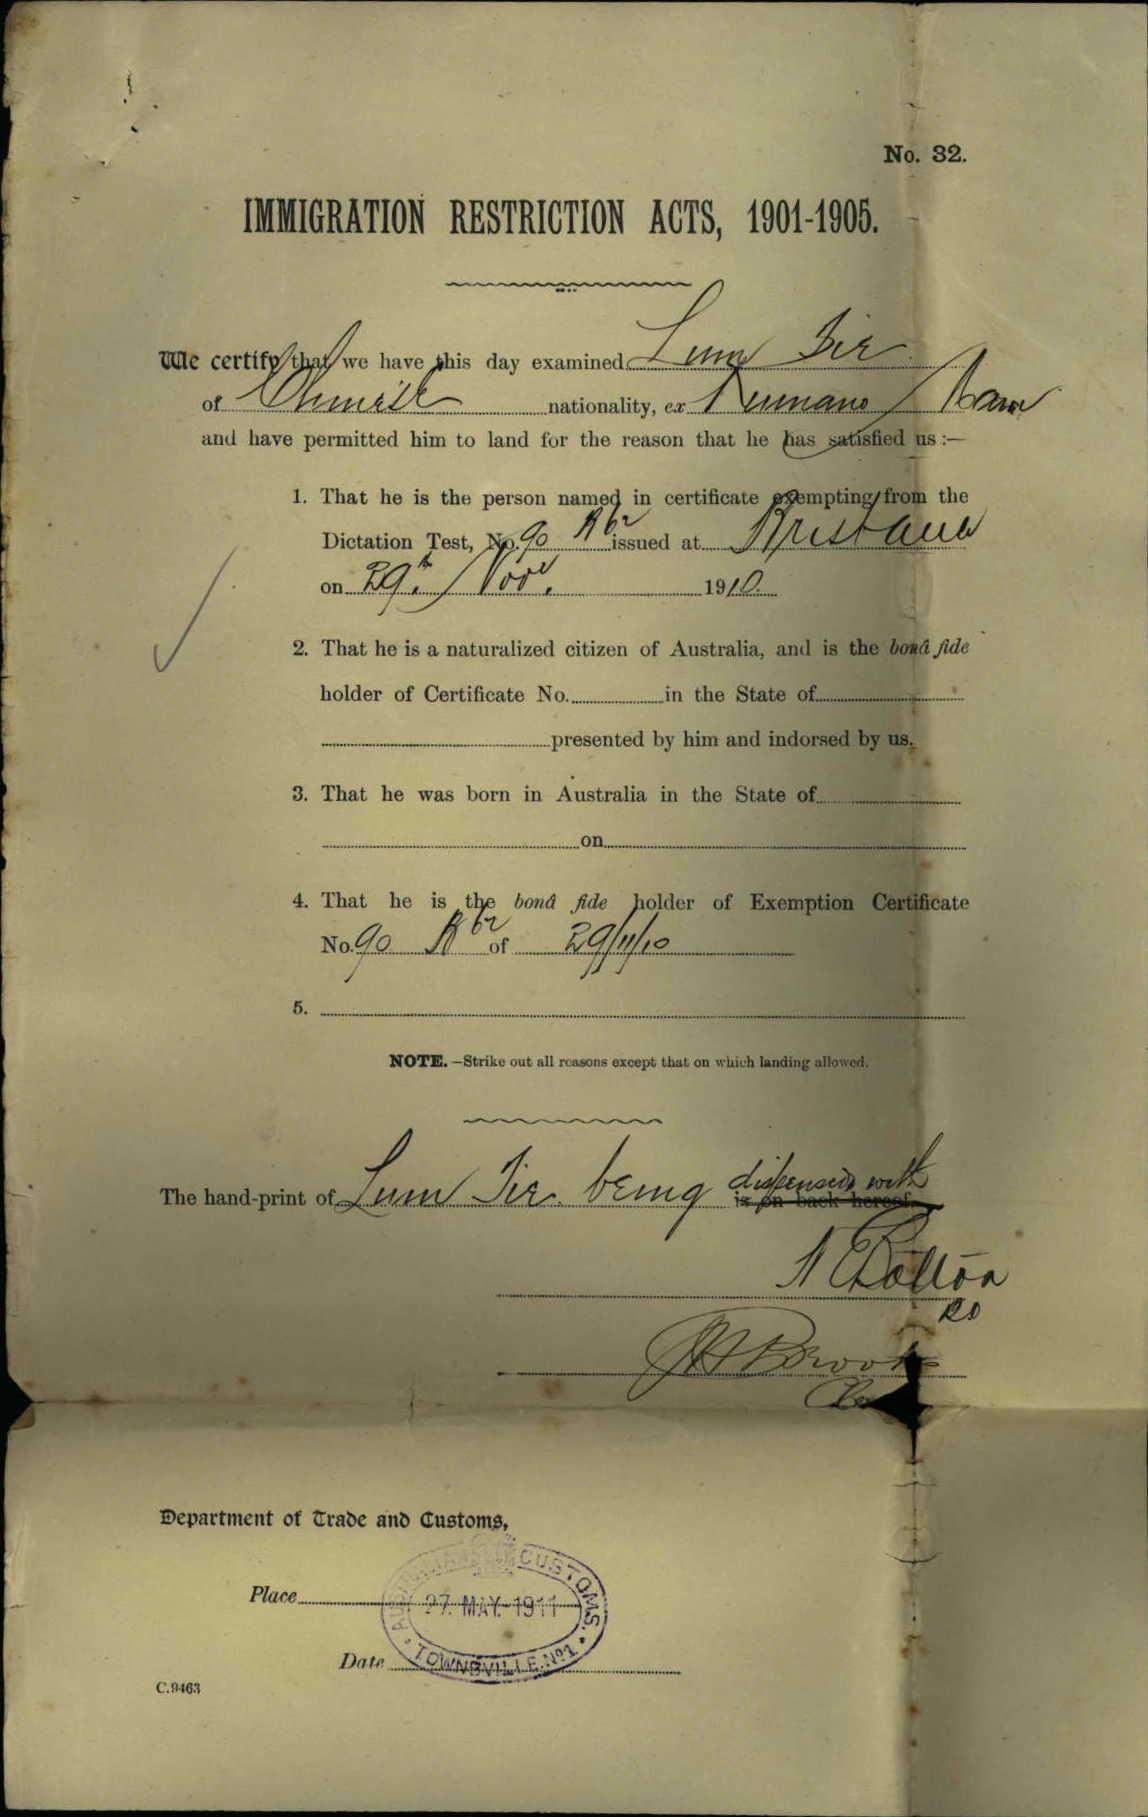 No. 32.
IMMIGRATION RESTRICTION ACTS, 1901-1905.
We certify that we have this day examined Lum Tie
of Chinese nationality, ex Kumano Maru
and have permitted him to land for the reason that he has satisfied us :—
1. That he is the person named in certificate exempting from the
Dictation Test, No. 90 issued at Brisbane
on 29th Novr. 1910.
2. That he is a naturalized citizen of Australia, and is the bonâ fide
holder of Certificate No. in the State of
presented by him and indorsed by us.
3. That he was born in Australia in the State of
on
4. That he is the bonâ fide holder of Exemption Certificate
No. 90 of 29/11/10
5.
NOTE.—Strike out all reasons except that on which landing allowed.
The hand-print of Lum Tie being dispensed with
is on back hereof.
Department of Trade and Customs,
Place
AUSTRALIAN CUSTOMS.
27. MAY. 1911
TOWNSVILLE. No 1
Date
C.9463